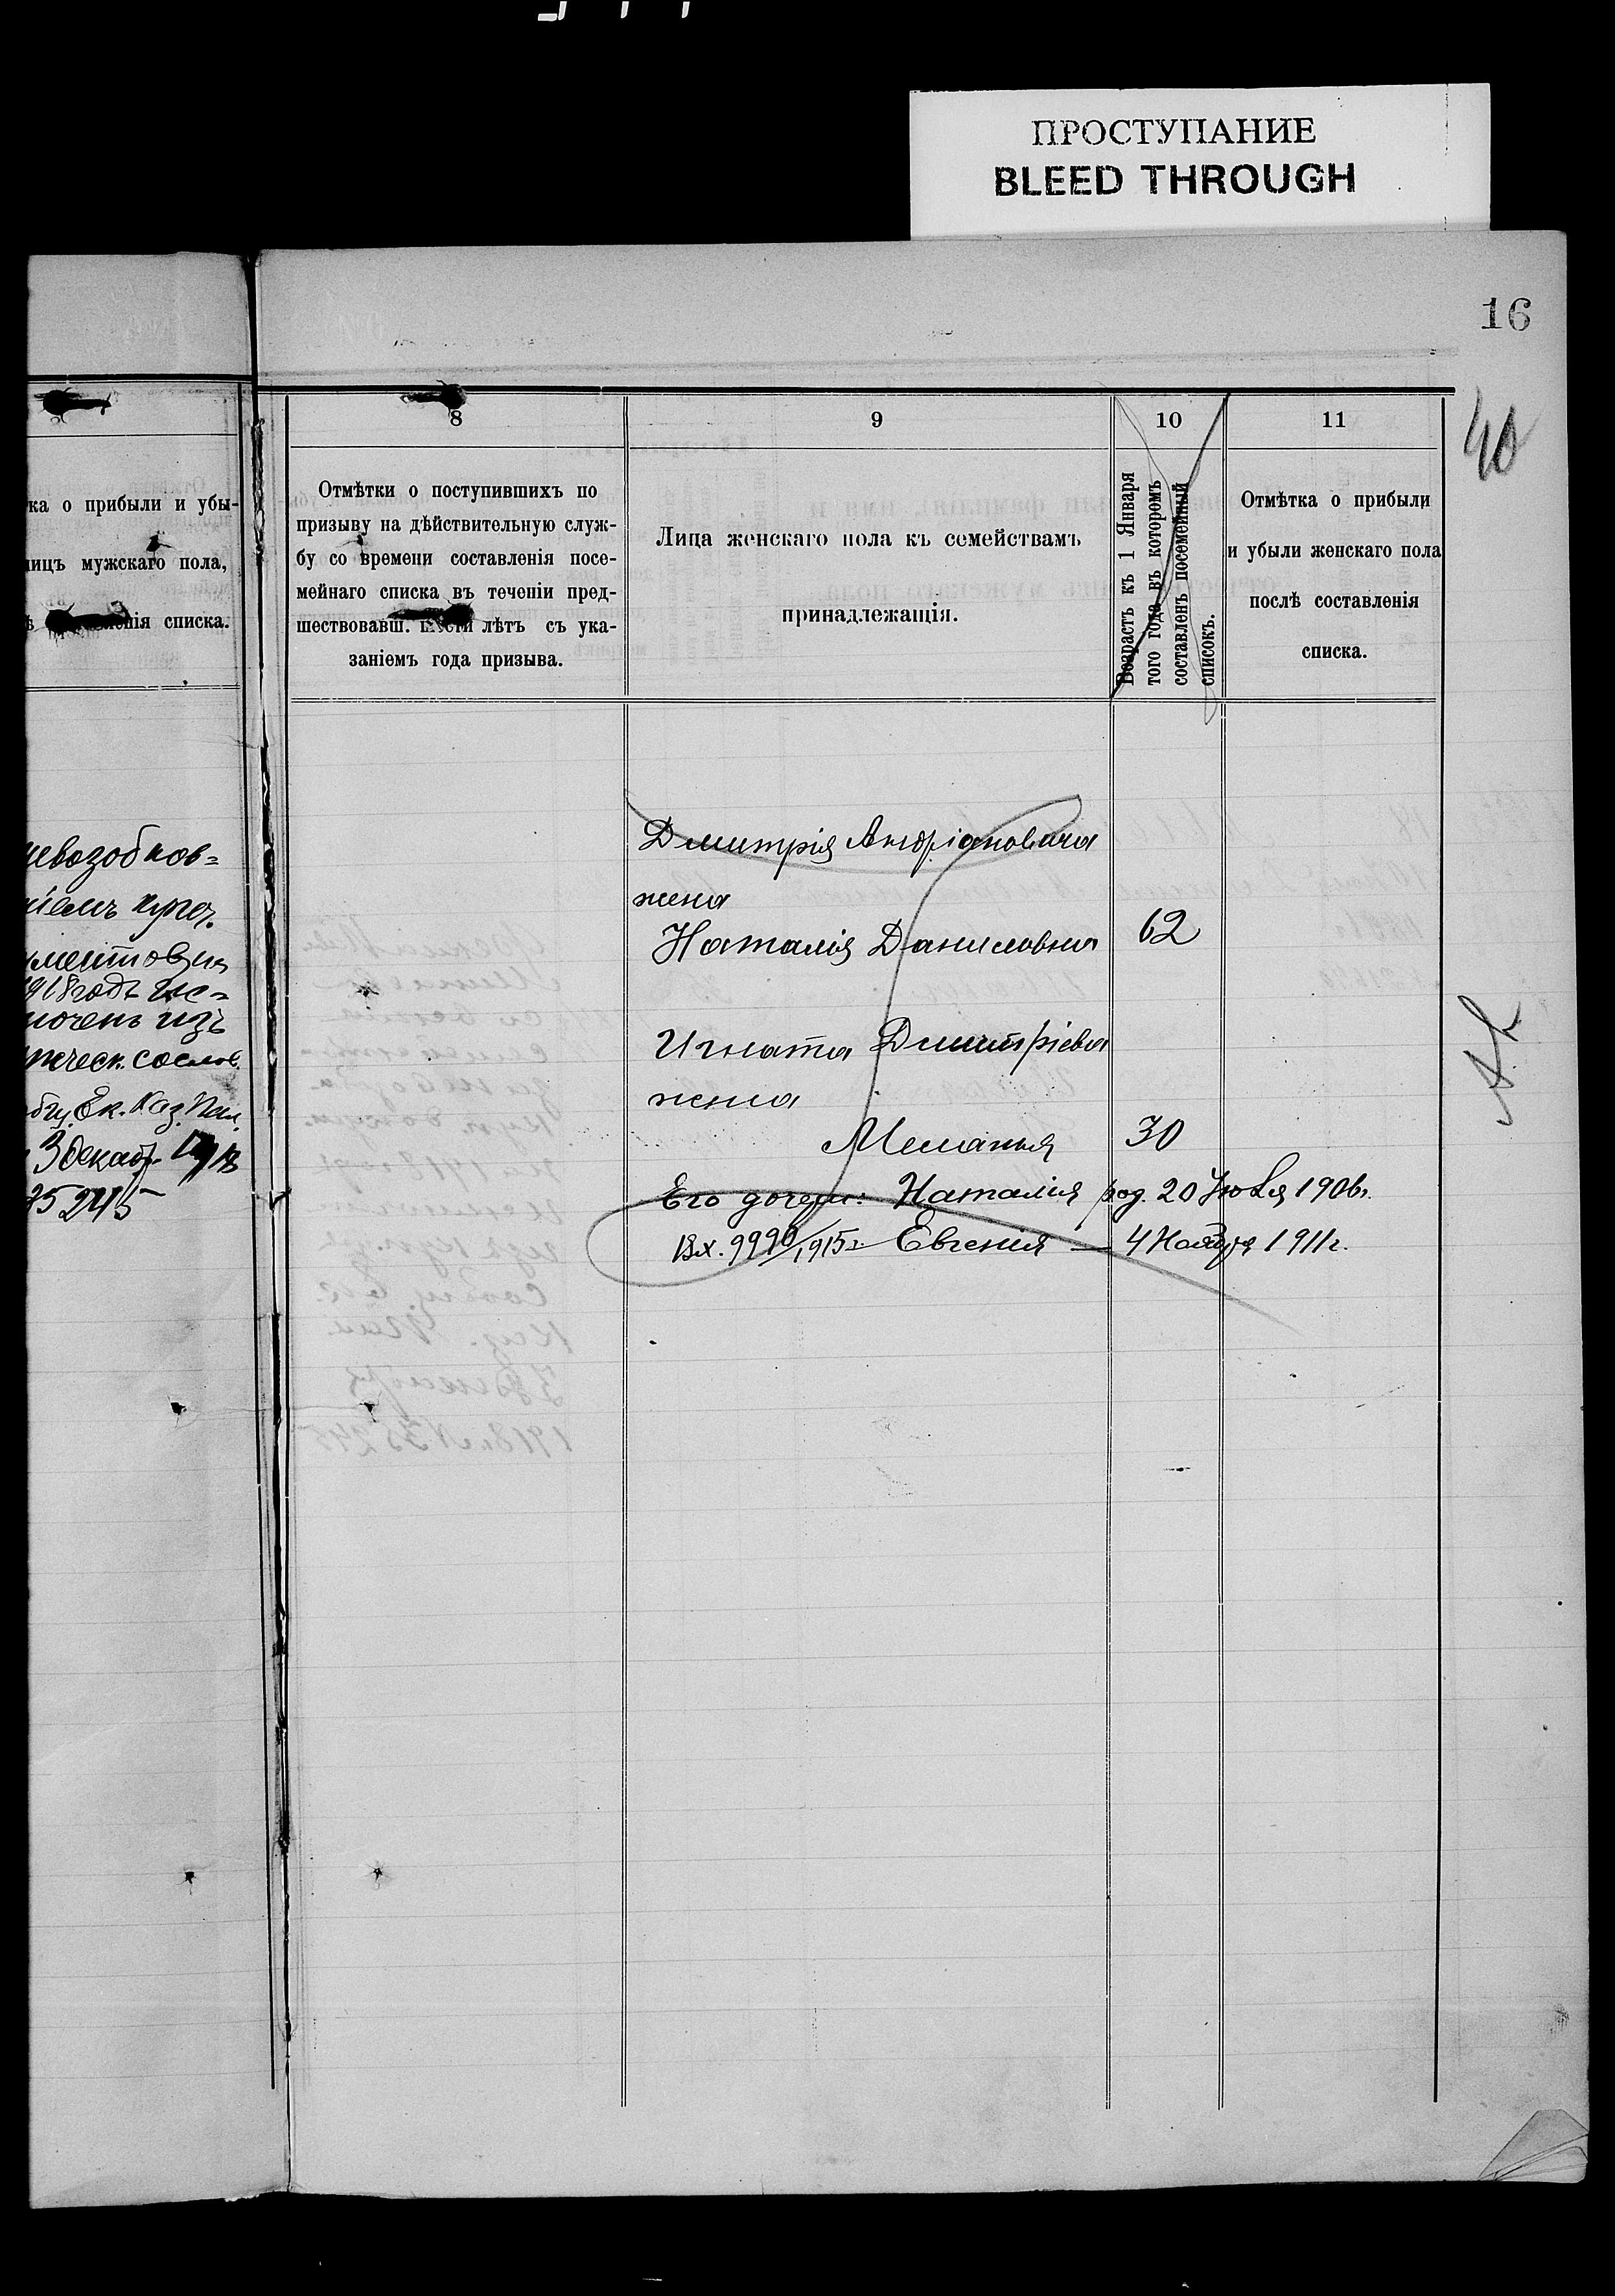 ПРОСТУПАНИЕ
BLEED THROUGH
16
40
8
9
10
11
ка о прибыли и убы-
лицъ мужскаго пола,
списка.
Отмѣтки о поступившихъ по
призыву на дѣйствительную служ-
бу со времени составленія посе-
мейнаго списка въ теченіи пред-
шествовавш. шести лѣтъ съ ука-
заніемъ года призыва.
Лица женскаго пола къ семействамъ
принадлежащія.
Возрастъ къ 1 Января
того года въ которомъ
составленъ посемейный
списокъ.
Отмѣтка о прибыли
и убыли женскаго пола
послѣ составленія
списка.
невозобнов=
ніемъ
1918 годъ ис=
лючень изъ
ическ. сослов.
Ек. Каз. Пал.
3 декаб. 1918
35245
Дмитрія Андріановича
жена
Наталія Даниловна 62
Игната Дмитріева
жена
Меланья 30
Его дочери: Наталія род. 20 Іюля 1906 г.
Вх. 9990/1915 г. Евгенія — 4 Ноября 1911 г.